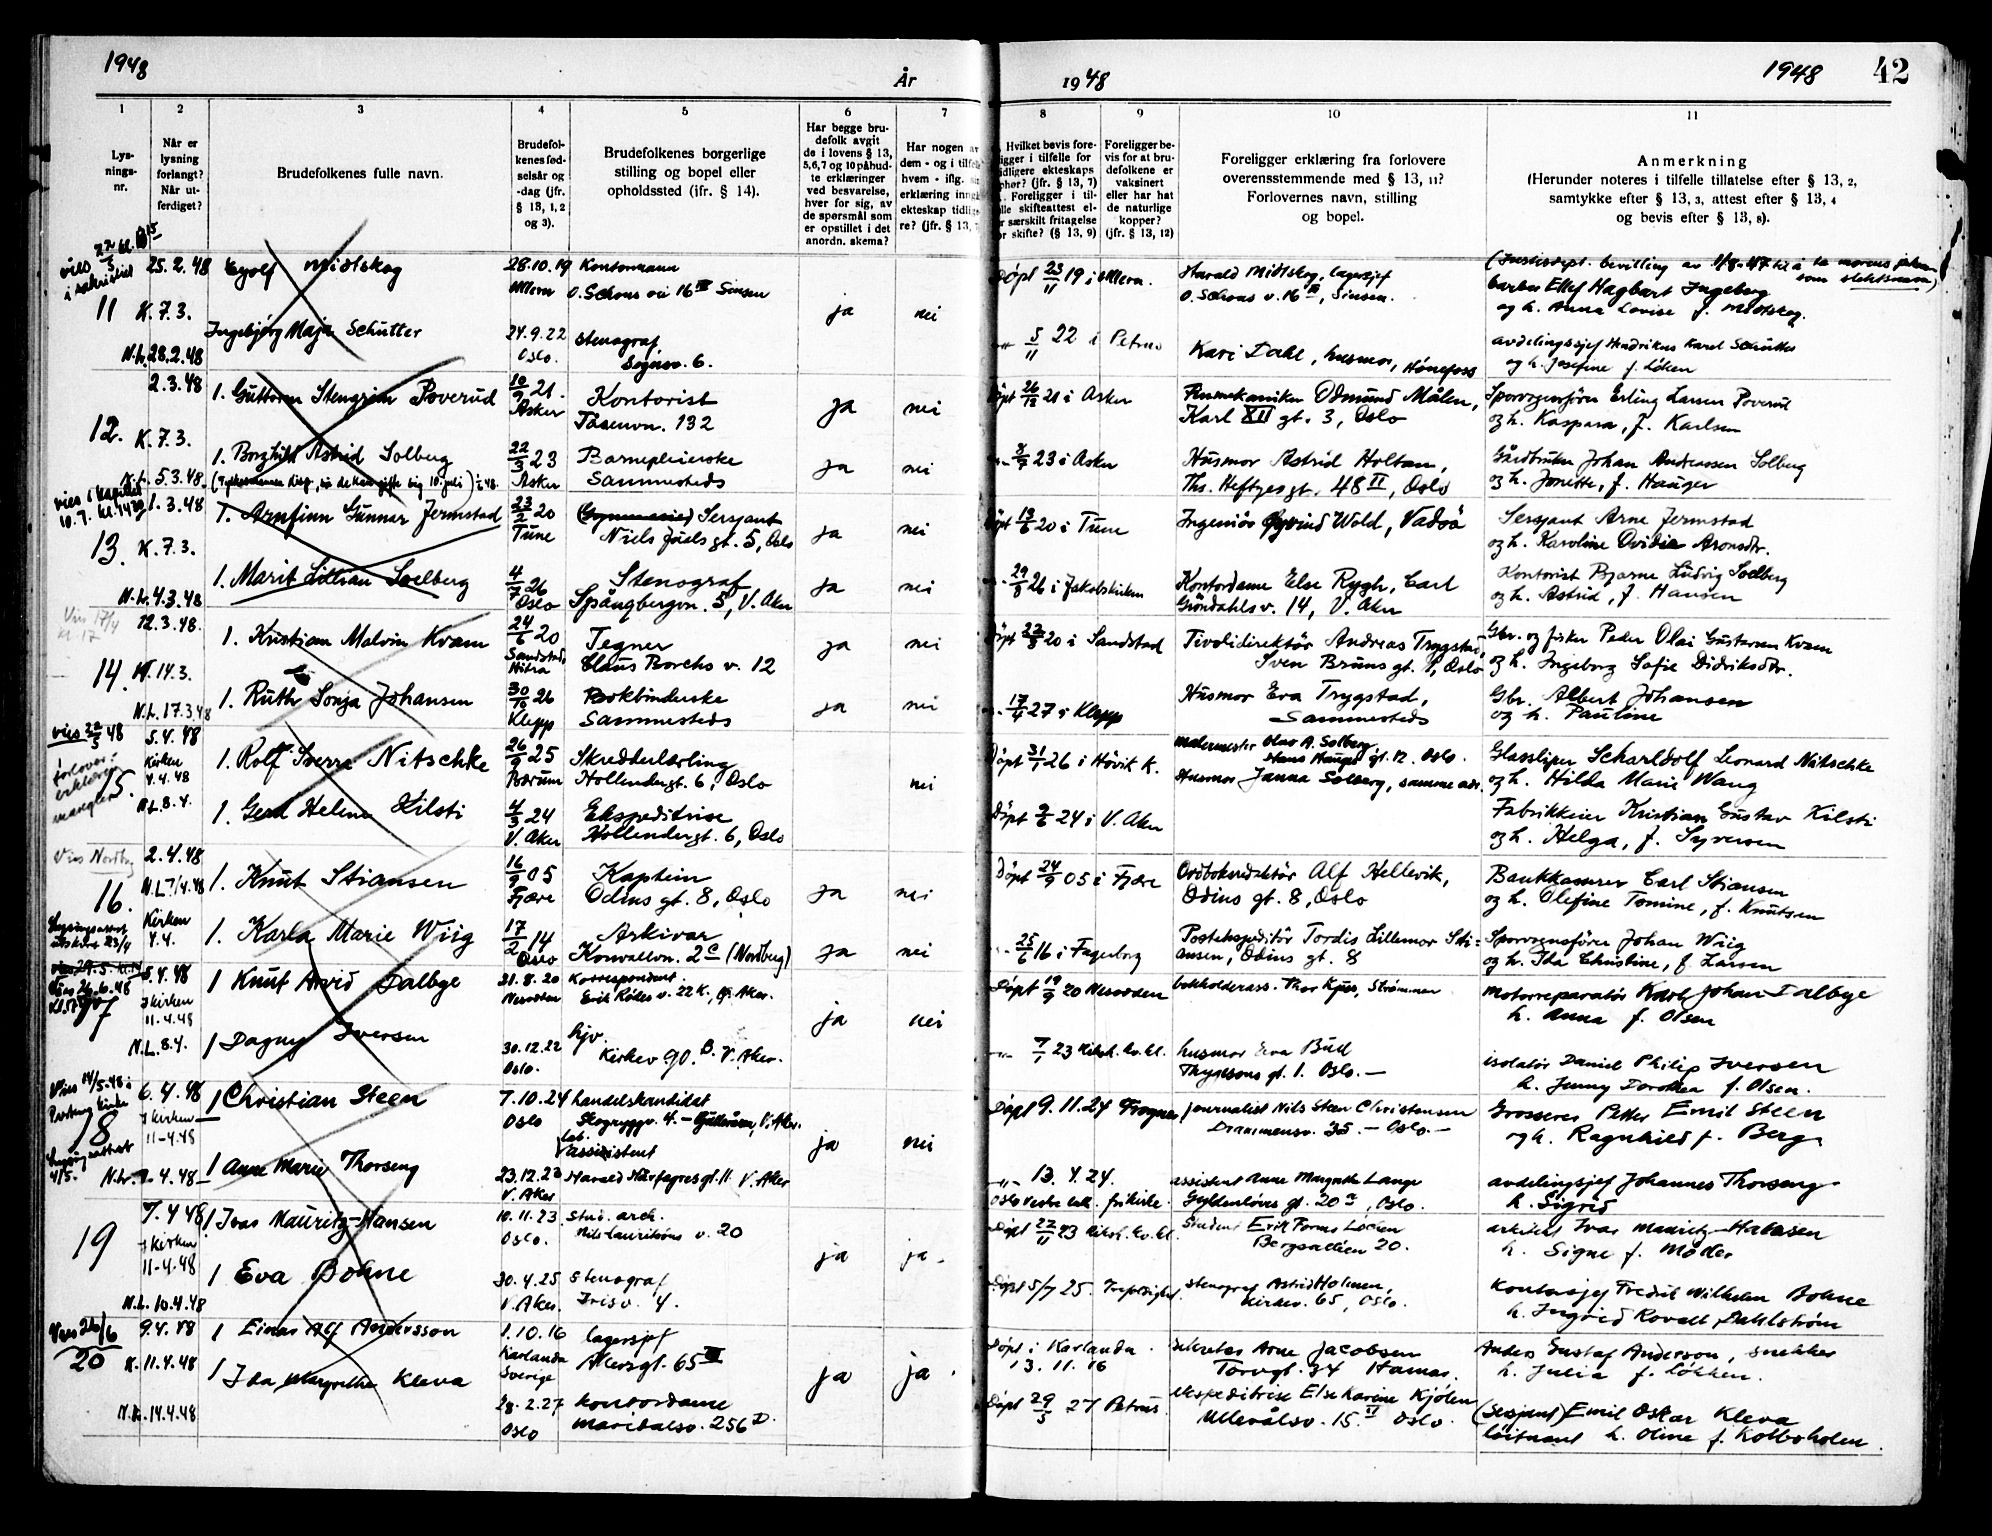 1948
År
1948
1948
42
1
2
3
4
5
6
7
8
9
10
11
Lys-
nings-
nr.
Når er
lysning
forlangt?
Når ut-
ferdiget?
Brudefolkenes fulle navn.
Brudefol-
kenes fød-
selsår og
-dag (jfr.
§ 13, 1, 2
og 3).
Brudefolkenes borgerlige
stilling og bopel eller
opholdssted (ifr. § 14).
Har begge bru-
defolk avgit
de i lovens § 13,
5,6,7 og 10 påbud-
te erklæringer
ved besvarelse,
hver for sig, av
de spørsmål som
er opstillet i det
anordn. skema?
Har nogen av
dem - og i tilfelle
hvem - iflg.
erklæring inng
ekteskap tidlig
re? (jfr. § 13,
Hvilket bevis fore-
igger i tilfelle for
idligere ekteskaps
phør? (jfr. § 13, 7)
Foreligger i til-
lle skifteattest el-
r særskilt fritagelse
or skifte? (§ 13, 9)
Foreligger be-
vis for at bru-
defolkene er
vaksinert
eller har hat
de naturlige
kopper?
(jfr. § 13, 12)
Foreligger erklæring fra forlovere
overensstemmende med § 13, 11?
Forlovernes navn, stilling
og bopel.
Anmerkning
(Herunder noteres i tilfelle tillatelse efter § 13, 2,
samtykke efter § 13, 3, attest efter § 13, 4
og bevis efter § 13, 8).
vies
i sakristiet
11
25.2.48
K. 7.3.
N.L. 28.2.48
Eyolf Midtskog
28.10.19
Kontormann
O. Schous vei 16 III Sinsen
ja
nei
Døpt 23/11 19 i
Harald Midtskog, lagersjef
O. Schous v. 16 III, Sinsen.
(Justisdept. bevilling av
som slektsnavn)
Ellef Hagbart Ingeberg
og h. Anna Lovise f. Midtskog.
Ingebjørg Maja Schutter
24.9.22
Oslo.
Stenograf
Sognsv. 6.
5/11 22 i Petrus
Kari Dahl, husmor, Hønefoss
avdelingssjef Hendrikus Karel Schutter
og h. Josefine f. Løken
12.
2.3.48
K. 7.3.
N.L. 5.3.48
1. Guttorm Stengrim Poverud
10/9 21.
Asker
Kontorist
Tåsenvn. 132
ja
nei
Døpt 26/12 21 i Asker
Odmund Målen,
Karl XII gt. 3, Oslo
Sporvognsfører Erling Larsen Poverud
og h. Kaspara, f. Karlsen
1. Borghild Astrid Solberg
22/3 23
Asker
Barnepleierske
Sammesteds
ja
nei
23 i Asker
Husmor Astrid Holtan,
Ths. Heftyesgt. 48 II, Oslo
Gårdbruker Johan Anderssen Solberg
og h. Jonette, f. Hauger
vies i kapellet
10.7. kl. 1430
13.
1.3.48
K. 7.3.
N.L. 4.3.48
1. Arnfinn Gunnar Jermstad
23/2 20
Tune
Sersjant
Niels Juels gt. 5, Oslo
ja
nei
Døpt 13/6 20 i Tune
Ingeniør Øyvind Wold, Vadsø
Sersjant Arne Jermstad
og h. Karoline Ovidia Aronsdtr.
1. Marit Lillian Soelberg
4/7 26
Oslo
Stenograf
Spångbergvn. 5, V. Aker
ja
nei
29/8 26 i Jakobskirken
Kontordame Else Rygh, Carl
Grøndahlsv. 14, V. Aker
Kontorist Bjarne Ludvig Soelberg
og h. Astrid, f. Hansen
Vies 17/4
kl. 17
14.
12.3.48.
K. 14.3.
N.L. 17.3.48
1. Kristian Malvin Kvam
24/6 20
Sandstad,
Hitra
Tegner
Claus Borchs v. 12
ja
nei
Døpt 22/8 20 i Sandstad
Tivolidirektør Andreas Trygstad,
Sven Bruns gt. 1, Oslo
Gbr. og fisker Peder Olai Gustavsen Kvam
og h. Ingeborg Sofie Didriksdtr.
1. Ruth Sonja Johansen
30/10 26
Klepp
Bokbinderske
Sammesteds
ja
nei
17/4 27 i Klepp
Husmor Eva Trygstad,
Sammesteds
Gbr. Albert Johansen
og h. Pauline
vies 22/5 48
forlover-
erklæring
mangler
15.
5.4.48
Kirken
4.4.48
N.L. 8.4.
1. Rolf Sverre Nitschke
26/9 25
Bærum
Skredderlærling
Hollendergt. 6, Oslo
nei
Døpt 31/1 26 i Høvik K.
Malermester Olav A. Solberg,
Hans Hauges gt. 12. Oslo.
Husmor Janna Solberg, samme adr.
Glassliper Scharldolf Leonard Nitschke
og h. Hilda Marie Wang
1. Gerd Helene Kilsti
4/3 24
V. Aker
Ekspeditrise
Hollendergt. 6, Oslo
Døpt 9/6 24 i V. Aker
Fabrikkeier Kristian Gustav Kilsti
og h. Helga, f. Syversen
Vies Nordby
16.
2.4.48
N.L. 7/4.48
Kirken
4.4.
1. Knut Stiansen
16/9 05
Fjære
Kaptein
Odins gt. 8, Oslo
ja
nei
Døpt 24/9 05 i Fjære
Ordbokredaktør Alf Hellevik,
Odins gt. 8, Oslo
Bankkasserer Carl Stiansen
og h. Olefine Tomine, f. Knutsen
Lysningsattest
utskrevet 23/4
1. Karla Marie Wiig
17/2 14
Oslo
Arkivar
Konvallvn. 2 c (Nordberg)
ja
nei
25/6 16 i Fagerborg
Postekspeditør Tordis Lillemor Sti-
ansen, Odins gt. 8
Sporvognsfører Johan Wiig
og h. Ida Christine, f. Larsen
vies 26.6.48
17
5.4.48
i kirken
11-4.48
N.L. 8.4.
1 Knut Arvid Dalbye
31.8.20
Nesodden
Korrespondent.
Erik Rødes v. 22 K., V. Aker.
ja
nei
Døpt 19/9 20 Nesodden
bokholderass. Thor Kjus, Strømmen
Motorreparatør Karl Johan Dalbye
h. Anna f. Olsen
1 Dagny Iversen
30.12.22
Oslo.
hjv.
Kirkev. 90. B. V. Aker.
7/1 23
husmor Eva Bull
Thygesons gt. 1. Oslo.
isolatør Daniel Philip Iversen
h. Jenny Dorothea f. Olsen.
Vies 14/5.48 i
18
Lysningsattest
4/5.
6.4.48
i kirken
11-4.48
1 Christian Steen
7.10.24
Oslo
handelskandidat
Skogryggv. 4. V. Aker.
ja
nei
Døpt 9.11.24 Frogner
Journalist Nils Steen Christensen
Drammensv. 35. - Oslo.
Grosserer Petter Emil Steen
og h. Ragnhild f. Berg
1 Anne Marie Thorseng
23.12.23
V. Aker
Lab.
assistent
Harald Hårfagresgt. 11 V. Aker
13.4.24.
frikirke.
assistent Anne Margrethe Lange
Gyldenløves gt. 20 a, Oslo.
avdelingsjef Johannes Thorseng
h. Sigrid
19
7.4.48
i kirken
11-4.48
N.L. 10.4.48
1 Ivar Mauritz-Hansen
10.11.23
Oslo.
stud. arch.
Nils Lauritsøns v. 20
ja
ja.
Døpt 22/11 23
Student Erik Fornes Løchen
Bergsalléen 20.
arkitekt Ivar Mauritz-Hansen
h. Signe f. Møder
1 Eva Bohne
30.4.25
V. Aker.
Stenograf
Irisv. 4.
Døpt 5/7 25.
stenograf Astrid Holmen,
Kirkev. 65, Oslo.
Kontorsjef Fredrik Wilhelm Bohne
h. Ingrid Dahlstrøm
Vies 26/6
20
9.4.48
K. 11.4.48
N.L. 14.4.48
1 Einar Alf Andersson
1.10.16
Karlanda
Sverige
lagersjef
Akersgt. 65 III
ja
ja.
Døpt i Karlanda
13.11.16
Sekretær Arne Jacobsen
Torvgt. 34 Hamar.
Anders Gustaf Anderson, snekker
h. Julia f. Løkken.
1 Ida Margrethe Kleva
28.2.27
Oslo
kontordame
Maridalsv. 256 D.
Døpt 29/5 27 Petrus.
ekspeditrise Else Karine Kjølen
Ullevålsv. 15. II Oslo.
(Sersjant) Emil Oskar Kleva
løitnant h. Oline f. Kolboholen.